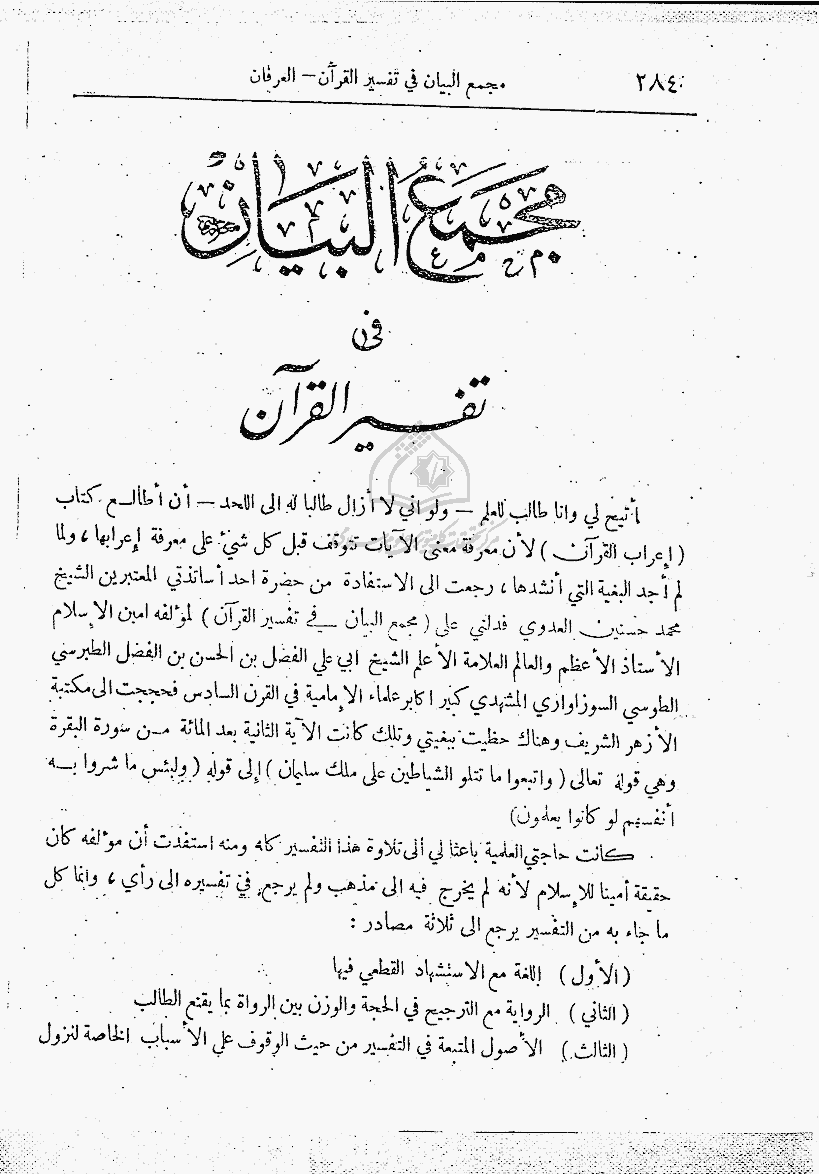 ٢٨٤
مجمع البيان في تفسير القرآن — العرفان
مجمع البيان
في
تفسير القرآن
أتيح لي وانا طالب للعلم — ولو اني لا أزال طالبا له الى اللحد — أن أطالع كتاب
( إعراب القرآن ) لأن معرفة معنى الآيات تتوقف قبل كل شيء على معرفة إعرابها ، ولما
لم أجد البغية التي أنشدها ، رجعت الى الاستفادة من حضرة احد أساتذتي المعتبرين الشيخ
محمد حسنين العدوي فدلني على ( مجمع البيان في تفسير القرآن ) لمؤلفه امين الاسلام
الأستاذ الأعظم والعالم العلامة الأعلم الشيخ ابي علي الفضل بن الحسن بن الفضل الطبرسي
الطوسي السوزاوازي المشهدي كبير اكابر علماء الإمامية في القرن السادس فحججت الى مكتبة
الأزهر الشريف وهناك حظيت ببغيتي وتلك كانت الآية الثانية بعد المائة من سورة البقرة
وهي قوله تعالى ( واتبعوا ما تتلو الشياطين على ملك سليمان ) إلى قوله ( ولبئس ما شروا به
أنفسهم لو كانوا يعلمون)
كانت حاجتي العلمية باعثا لي الى تلاوة هذا التفسير كله ومنه استفدت أن مؤلفه كان
حقيقة أمينا للإسلام لأنه لم يخرج فيه الى مذهب ولم يرجع في تفسيره الى رأي ، وانما كل
ما جاء به من التفسير يرجع الى ثلاثة مصادر :
( الأول ) اللغة مع الاستشهاد القطعي فيها
( الثاني ) الرواية مع الترجيح في الحجة والوزن بين الرواة بما يقنع الطالب
( الثالث ) الأصول المتبعة في التفسير من حيث الوقوف على الأسباب الخاصة لنزول